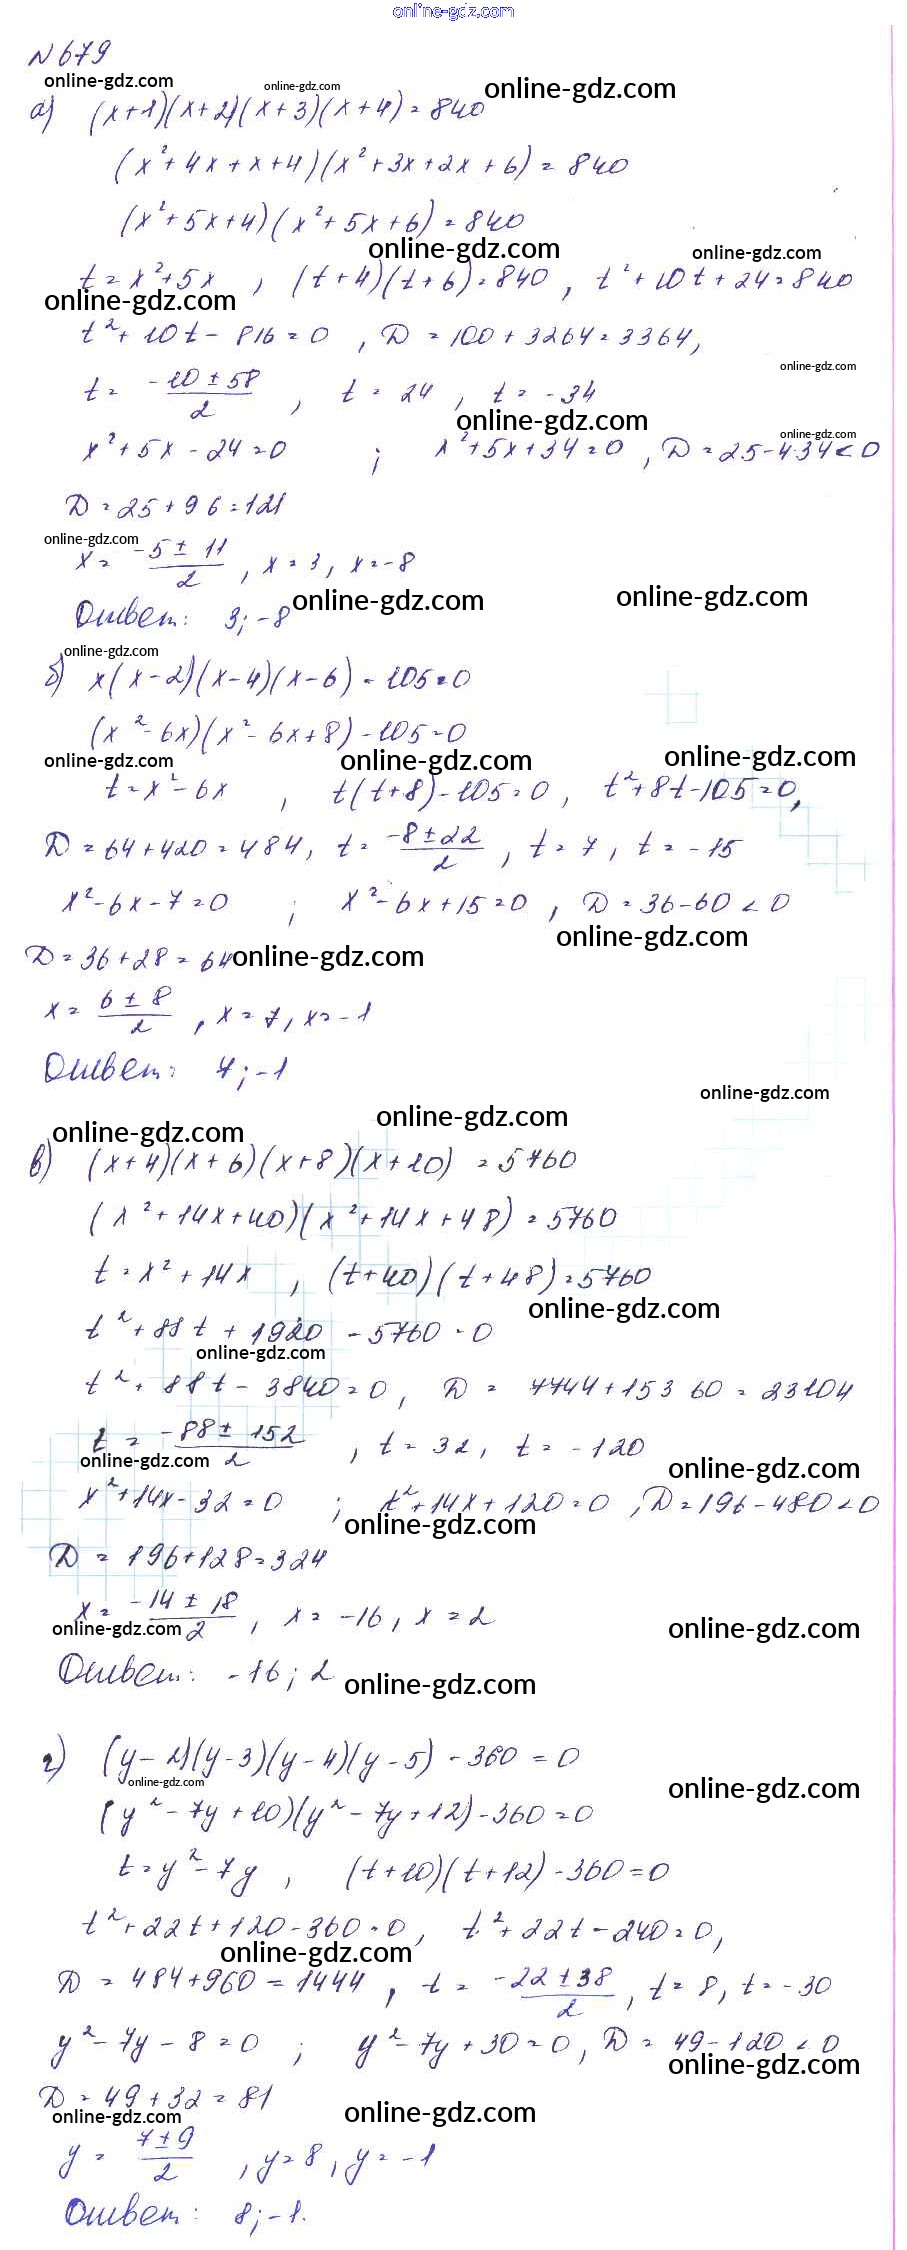 online-gdz.com
N 679
online-gdz.com online-gdz.com online-gdz.com
а) (x+1)(x+2)(x+3)(x+4)=840
(x²+4x+x+4)(x²+3x+2x+6)=840
(x²+5x+4)(x²+5x+6)=840
online-gdz.com online-gdz.com
t=x²+5x, (t+4)(t+6)=840, t²+10t+24=840
online-gdz.com
t²+10t-816=0, D=100+3264=3364,
online-gdz.com
t= (-10±58)/2, t=24, t=-34
online-gdz.com online-gdz.com
x²+5x-24=0; x²+5x+34=0, D=25-4·34<0
D=25+96=121
online-gdz.com
x= (-5±11)/2, x=3, x=-8
online-gdz.com online-gdz.com
Ответ: 3; -8
online-gdz.com
б) x(x-2)(x-4)(x-6)-105=0
(x²-6x)(x²-6x+8)-105=0
online-gdz.com online-gdz.com online-gdz.com
t=x²-6x, t(t+8)-105=0, t²+8t-105=0,
D=64+420=484, t= (-8±22)/2, t=7, t=-15
x²-6x-7=0; x²-6x+15=0, D=36-60<0
online-gdz.com
D=36+28=64 online-gdz.com
x= (6±8)/2, x=7, x=-1
Ответ: 7; -1
online-gdz.com
online-gdz.com
online-gdz.com
в) (x+4)(x+6)(x+8)(x+10)=5760
(x²+14x+40)(x²+14x+48)=5760
t=x²+14x, (t+40)(t+48)=5760
online-gdz.com
t²+88t+1920-5760=0
online-gdz.com
t²+88t-3840=0, D=7744+15360=23104
t= (-88±152)/2, t=32, t=-120
online-gdz.com online-gdz.com
x²+14x-32=0; t²+14x+120=0, D=196-480<0
online-gdz.com
D=196+128=324
x= (-14±18)/2, x=-16, x=2
online-gdz.com online-gdz.com
Ответ: -16; 2
online-gdz.com
г) (y-2)(y-3)(y-4)(y-5)-360=0
online-gdz.com online-gdz.com
(y²-7y+10)(y²-7y+12)-360=0
t=y²-7y, (t+10)(t+12)-360=0
t²+22t+120-360=0, t²+22t-240=0,
online-gdz.com
D=484+960=1444, t= (-22±38)/2, t=8, t=-30
y²-7y-8=0; y²-7y+30=0, D=49-120<0
online-gdz.com
D=49+32=81
online-gdz.com online-gdz.com
y= (7±9)/2, y=8, y=-1
Ответ: 8; -1.